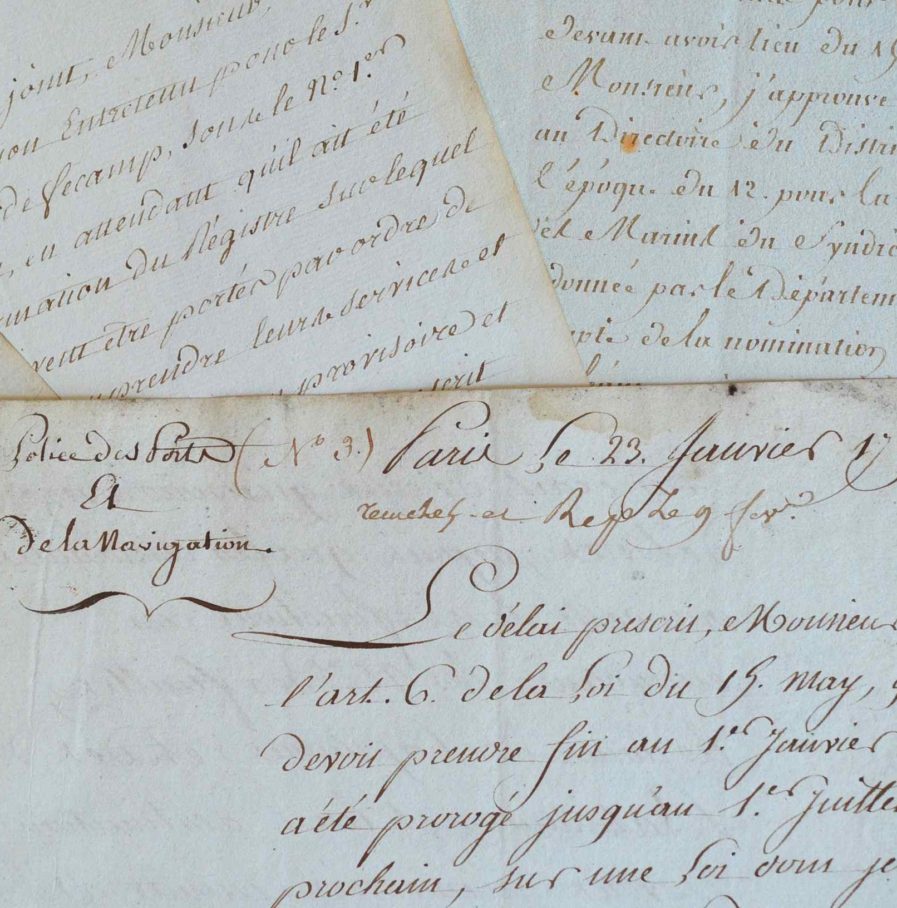 joint, Monsieur,
Entretenu pour le Sr
de fecamp, sous le No. 1er
, en attendant qu'il ait été
du Régistre sur lequel
être portés par ordre de
prendre leurs services et
provisoire et
pour
devant avoir lieu du 15
Monsieur, j'approuve
au Directoire du Distri
l'époque du 12. pour la
Marins du Syndic
donnée par le Départem
de la nomination
Police des Ports
Et
de la Navigation.
(No 3.) Paris Le 23. Janvier 17
et Le 9 fevr.
Le délai prescrit, Monsieur
l'art. 6. de la Loi du 15. may,
devoit prendre fin au 1er Janvier
a été prorogé jusqu'au 1er Juillet
prochain, sur une Loi dont je